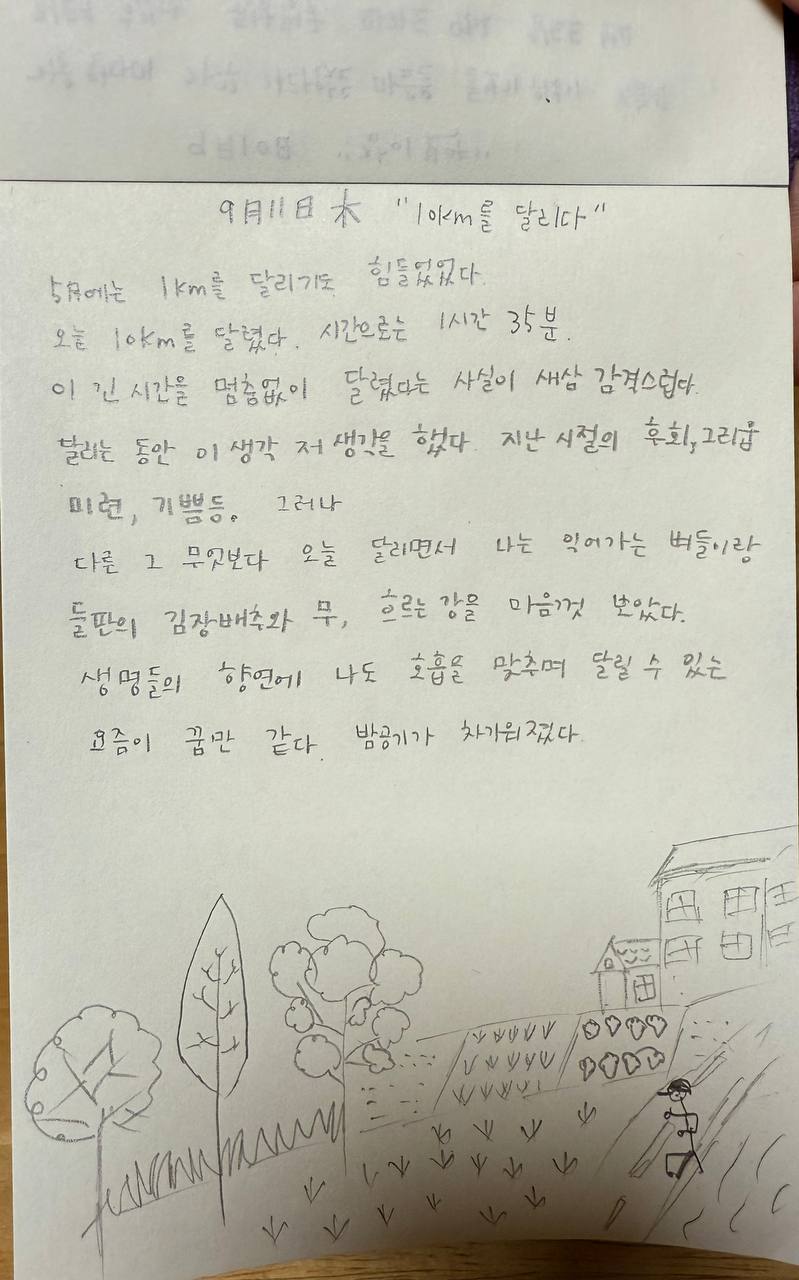 9月11日 木 "10km를 달리다"
5月에는 1km를 달리기도 힘들었었다.
오늘 10km를 달렸다. 시간으로는 1시간 35분.
이 긴 시간을 멈춤없이 달렸다는 사실이 새삼 감격스럽다.
달리는 동안 이 생각 저 생각을 했다. 지난 시절의 후회, 그리움
미련, 기쁨등. 그러나
다른 그 무엇보다 오늘 달리면서 나는 익어가는 벼들이랑
들판의 김장배추와 무, 흐르는 강을 마음껏 보았다.
생명들의 향연에 나도 호흡을 맞추며 달릴 수 있는
요즘이 꿈만 같다. 밤공기가 차가워졌다.